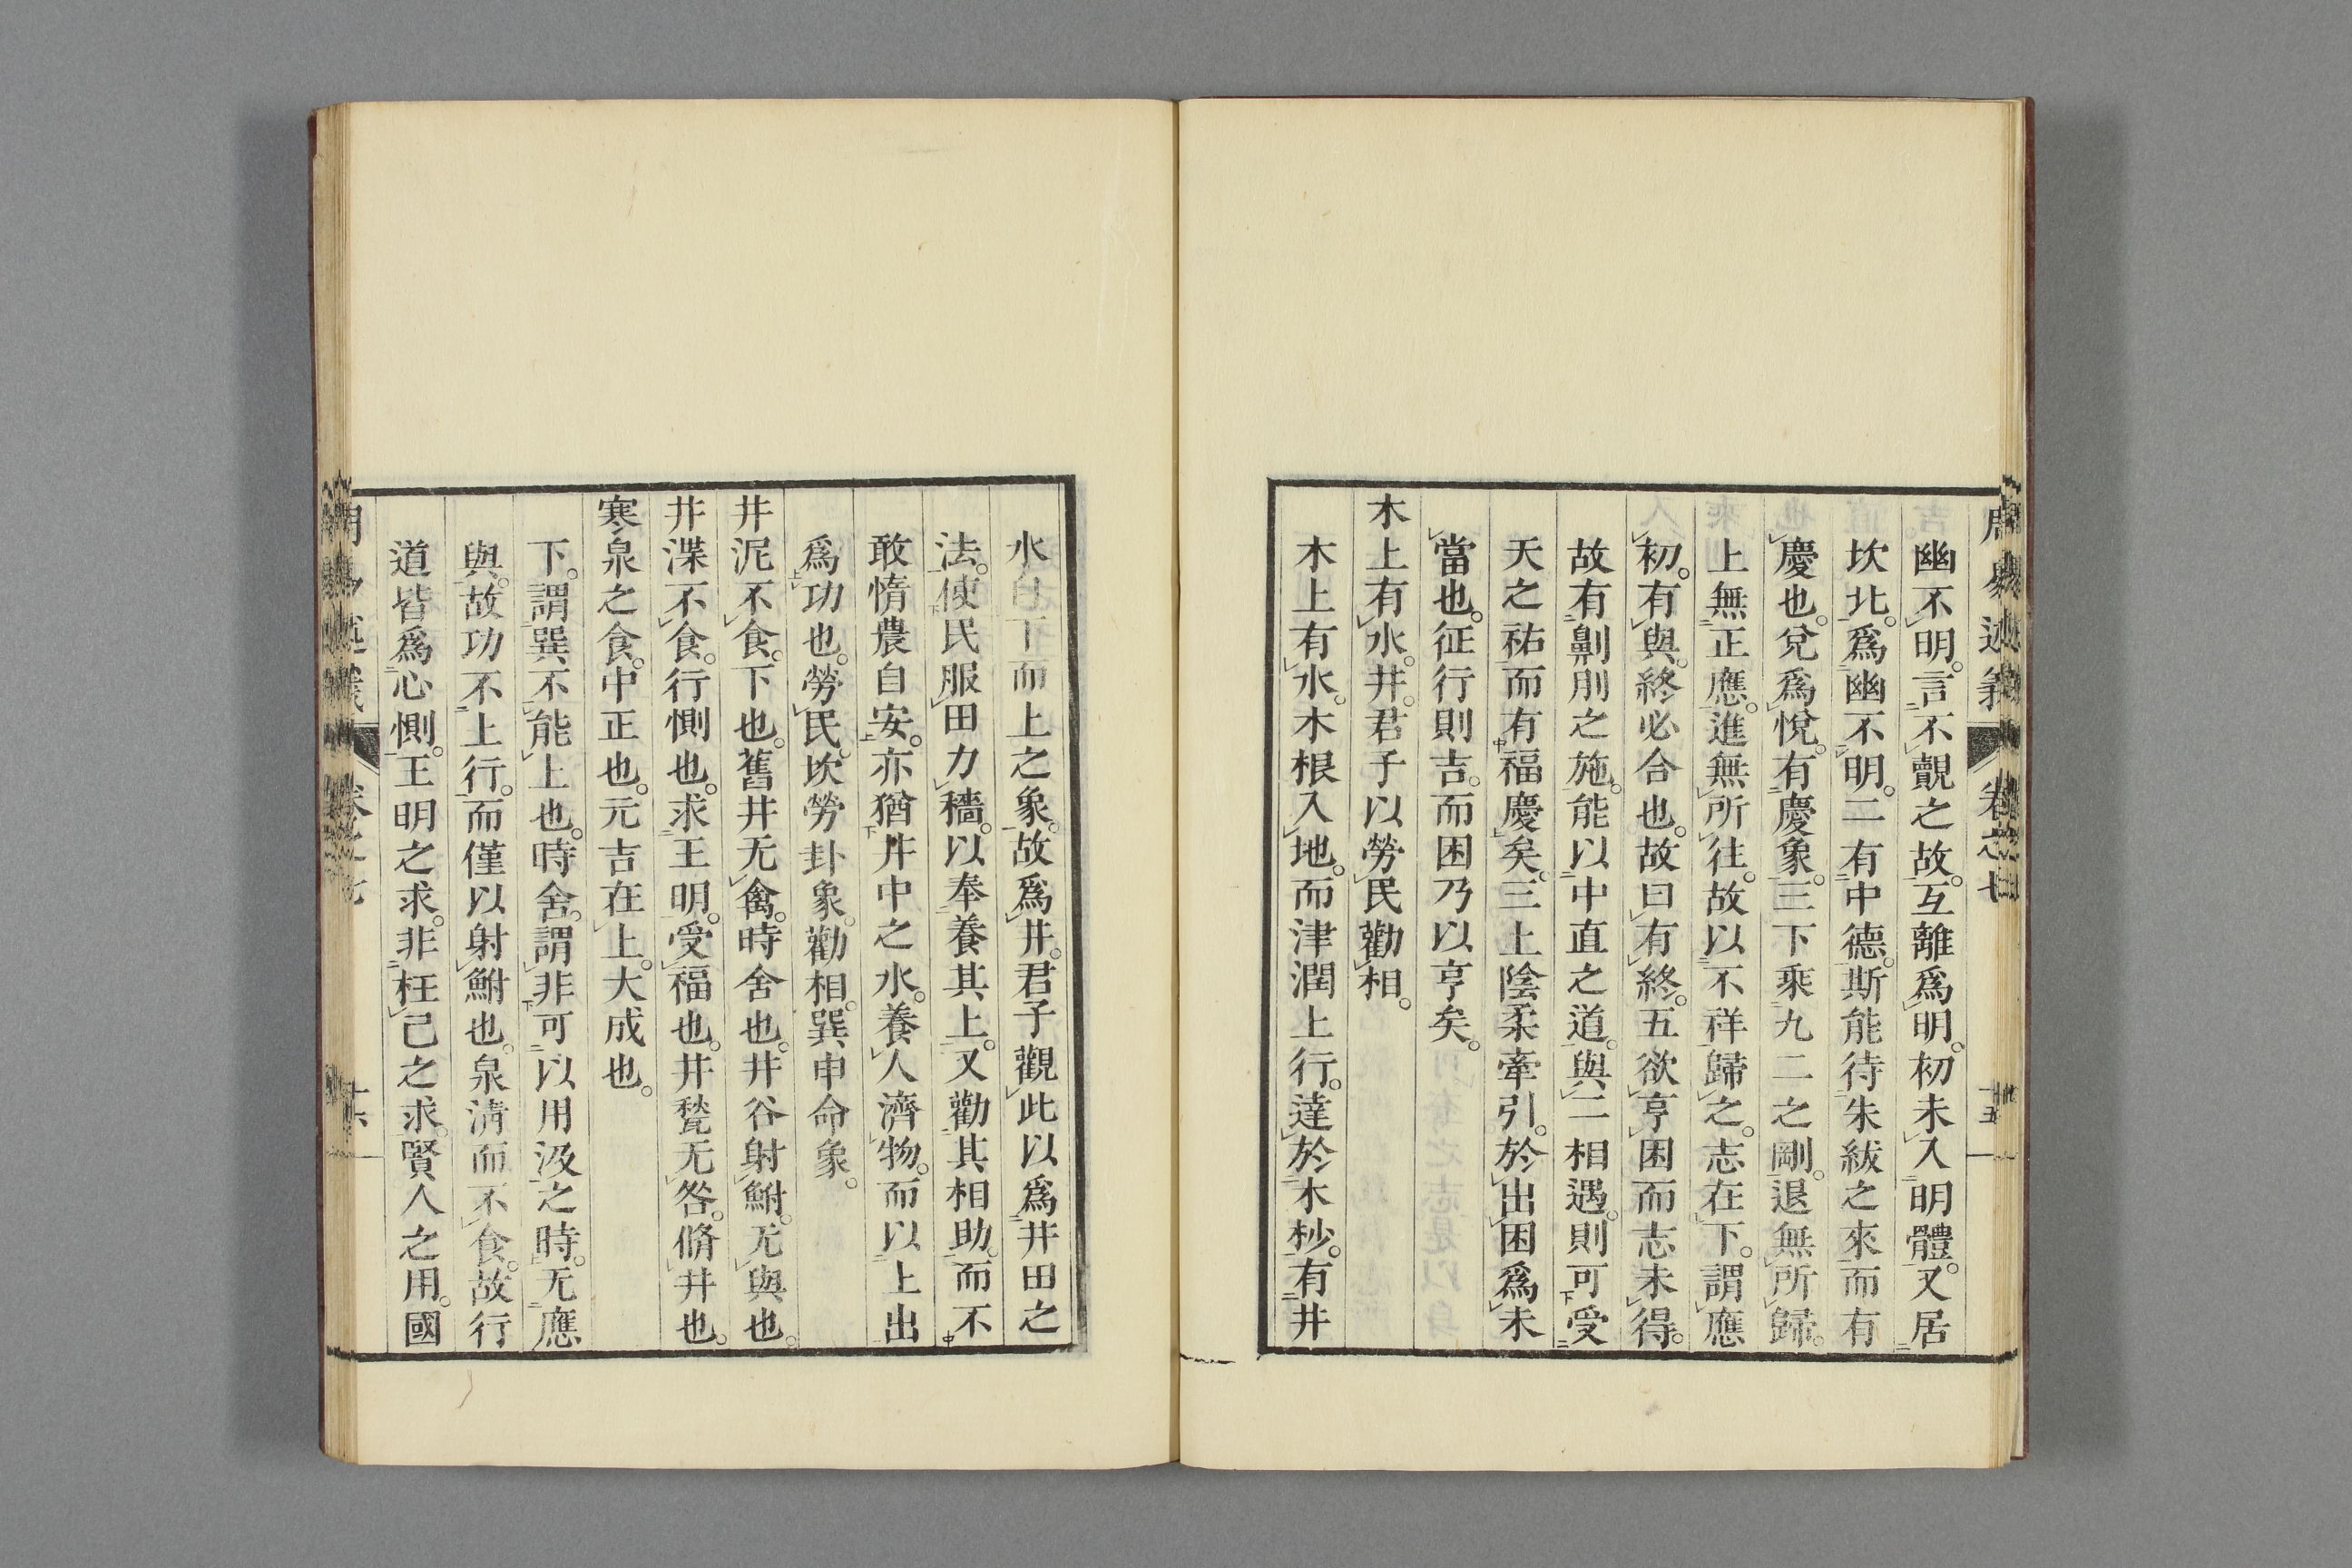 幽不明。言不覿之故。互離爲明。初未入明體。又居
坎北。爲幽不明。二有中德。斯能待朱紱之來而有
慶也。兌爲悅。有慶象。三下乘九二之剛。退無所歸。
上無正應。進無所往。故以不祥歸之。志在下。謂應
初。有與。終必合也。故曰有終。五欲亨困而志未得。
故有劓刖之施。能以中直之道。與二相遇。則可受
天之祐而有福慶矣。三上陰柔牽引。於出困爲未
當也。征行則吉。而困乃以亨矣。
木上有水。井。君子以勞民勸相。
木上有水。木根入地。而津潤上行。達於木杪。有井
水自下而上之象。故爲井。君子觀此以爲井田之
法。使民服田力穡。以奉養其上。又勸其相助。而不
敢惰農自安。亦猶井中之水。養人濟物。而以上出
爲功也。勞民。坎勞卦象。勸相。巽申命象。
井泥不食。下也。舊井无禽。時舍也。井谷射鮒。无與也。
井渫不食。行惻也。求王明。受福也。井甃无咎。脩井也。
寒泉之食。中正也。元吉在上。大成也。
下。謂巽不能上也。時舍。謂非可以用汲之時。无應
與。故功不上行。而僅以射鮒也。泉清而不食。故行
道皆爲心惻。王明之求。非枉己之求。賢人之用。國